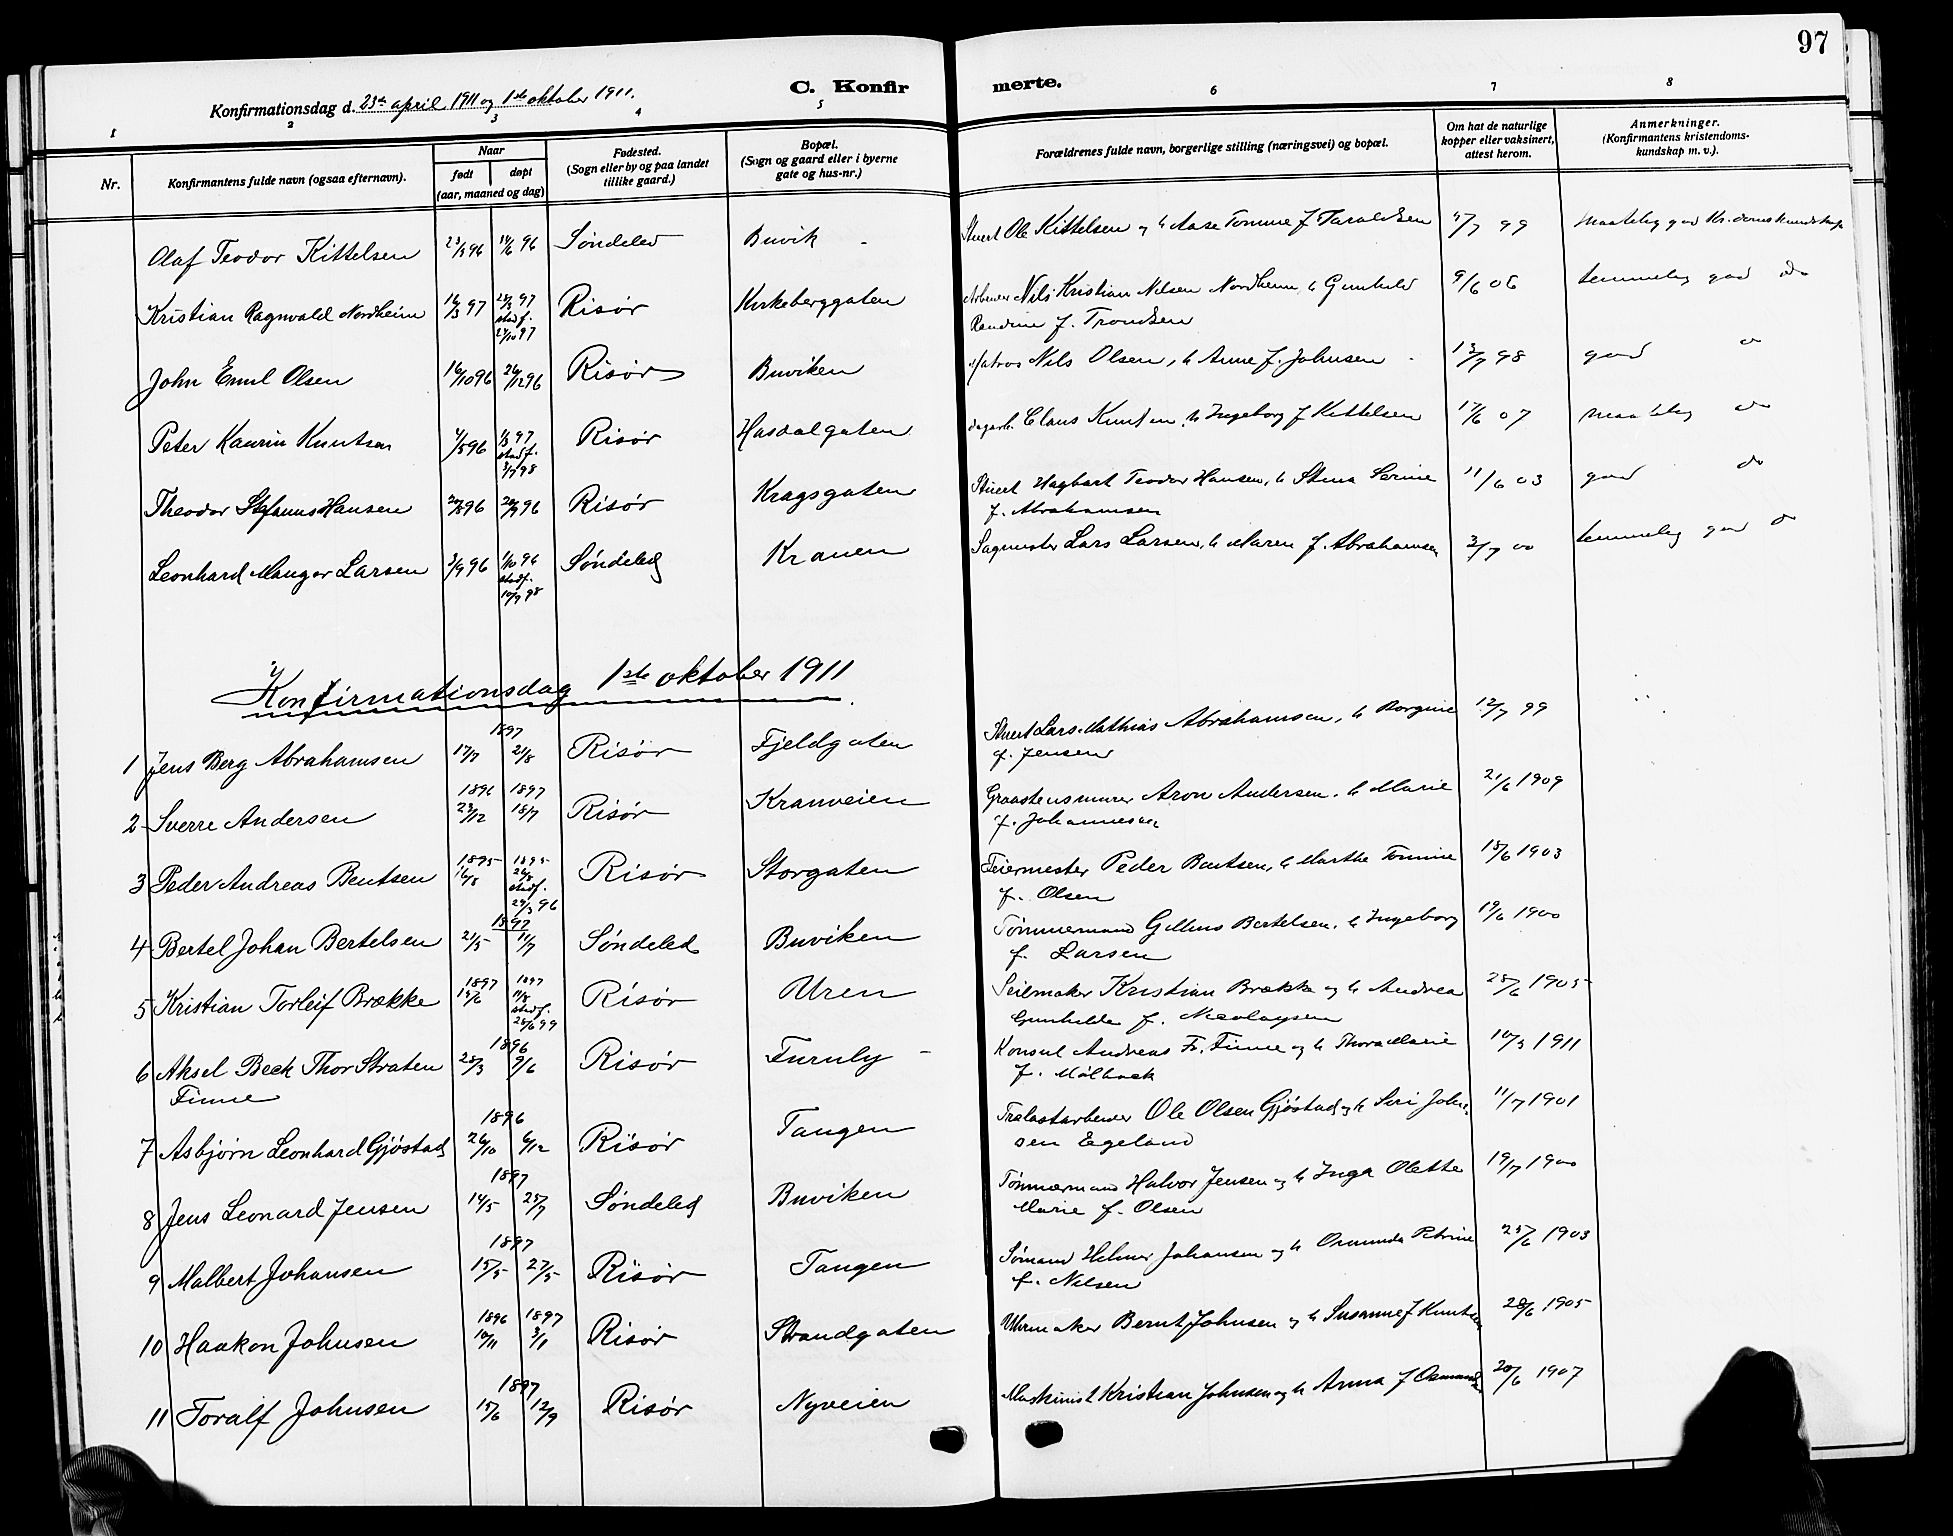 97
Konfirmationsdag d. 23de april 1911 og 1ste oktober 1911.
C. Konfirmerte.
1 2 3 4 5 6 7 8
Nr.
Konfirmantens fulde navn (ogsaa efternavn).
Naar
født
døpt
(aar, maaned og dag)
Fødested.
(Sogn eller by og paa landet
tillike gaard.)
Bopæl.
(Sogn og gaard eller i byerne
gate og hus-nr.)
Forældrenes fulde navn, borgerlige stilling (næringsvei) og bopæl.
Om hat de naturlige
kopper eller vaksinert,
attest herom.
Anmerkninger.
(Konfirmantens kristendoms-
kundskap m. v.).
Olaf Teodor Kittelsen 23/3 96 14/6 96 Søndeled Buvik Stuert Ole Kittelsen og h Aase Tomine f Taraldsen 4/7 99 maatelig god Kr.domskundskap
Kristian Ragnvald Nordheim 16/3 97 28/3 97 Risør Kirkeberggaten Arbeider Nils Kristian Nilsen Nordheim, h Gunhild 9/6 06 temmelig god do
stadf.
24/10 97
Randine f. Trondsen
John Emil Olsen 16/10 96 26/12 96 Risør Buviken Matros Nils Olsen, h Anne f. Johnsen 13/7 98 god do
Peter Kaurin Knutsen 4/8 96 1/3 97 Risør Hasdalgaten dagarb. Claus Knutsen, h Ingeborg f Kittelsen 17/6 07 maatelig do
stadf.
3/7 98
Theodor Stefanus Hansen 20/9 96 Risør Kragsgaten Stuert Hagbart Teodor Hansen, h Stina Serine 11/6 03 god do
f. Abrahamsen
Leonhard Mangor Larsen 3/9 96 1/10 96 Søndeled Kranen Sagmester Lars Larsen, h Maren f. Abrahamsen 3/7 00 temmelig god do
stadf.
10/9 98
Konfirmationsdag 1ste oktober 1911.
1897
1 Jens Berg Abrahamsen 17/7 21/8 Risør Fjeldgaten Stuert Lars Mathias Abrahamsen, h Borgine 12/7 99
f. Jensen
1896 1897
2 Sverre Andersen 23/12 18/7 Risør Kranveien Graastensmurer Aron Andersen, h Marie 21/6 1909
f. Johannesen
1895 1895
3 Peder Andreas Bentsen 16/8 26/8 Risør Storgaten Feiermester Peder Bentsen, h Marthe Tomine 15/6 1903
stadf.
29/3 96
f. Olsen
1897
4 Bertel Johan Bertelsen 2/5 11/7 Søndeled Buviken Tømmermand Gellius Bertelsen, h Ingeborg 19/6 1900
f. Larsen
1897 1897
5 Kristian Torleif Brække 14/6 11/8 Risør Uren Seilmaker Kristian Brække og h Andrea 28/6 1905
stadf.
25/6 99
Gunhilda f. Nicolaysen
1896
6 Aksel Beck Thor Straten 28/3 9/6 Risør Furuly Konsul Andreas Fr. Finne og h Thora Marie 10/3 1911
Finne
f. Mølbach
1896
7 Asbjørn Leonhard Gjøstad 26/10 6/12 Risør Tangen Trælastarbeider Ole Olsen Gjøstad og h Siri John-
sen Egeland
11/7 1901
1897
8 Jens Leonard Jensen 14/5 25/7 Søndeled Buviken Tømmermand Halvor Jensen og h Inga Olette 19/7 1900
Marie f. Olsen
1897
9 Malbert Johansen 15/5 27/5 Risør Tangen Sømand Helmer Johansen og h Osmunda Petrine 25/6 1903
f. Nilsen
1896 1897
10 Haakon Johnsen 10/11 3/1 Risør Strandgaten Uhrmaker Bernt Johnsen og h Susanne f Knutsen 28/6 1905
1897
11 Toralf Johnsen 15/6 12/9 Risør Nyveien Maskinist Kristian Johnsen og h Anna f Osmundsen 20/6 1907